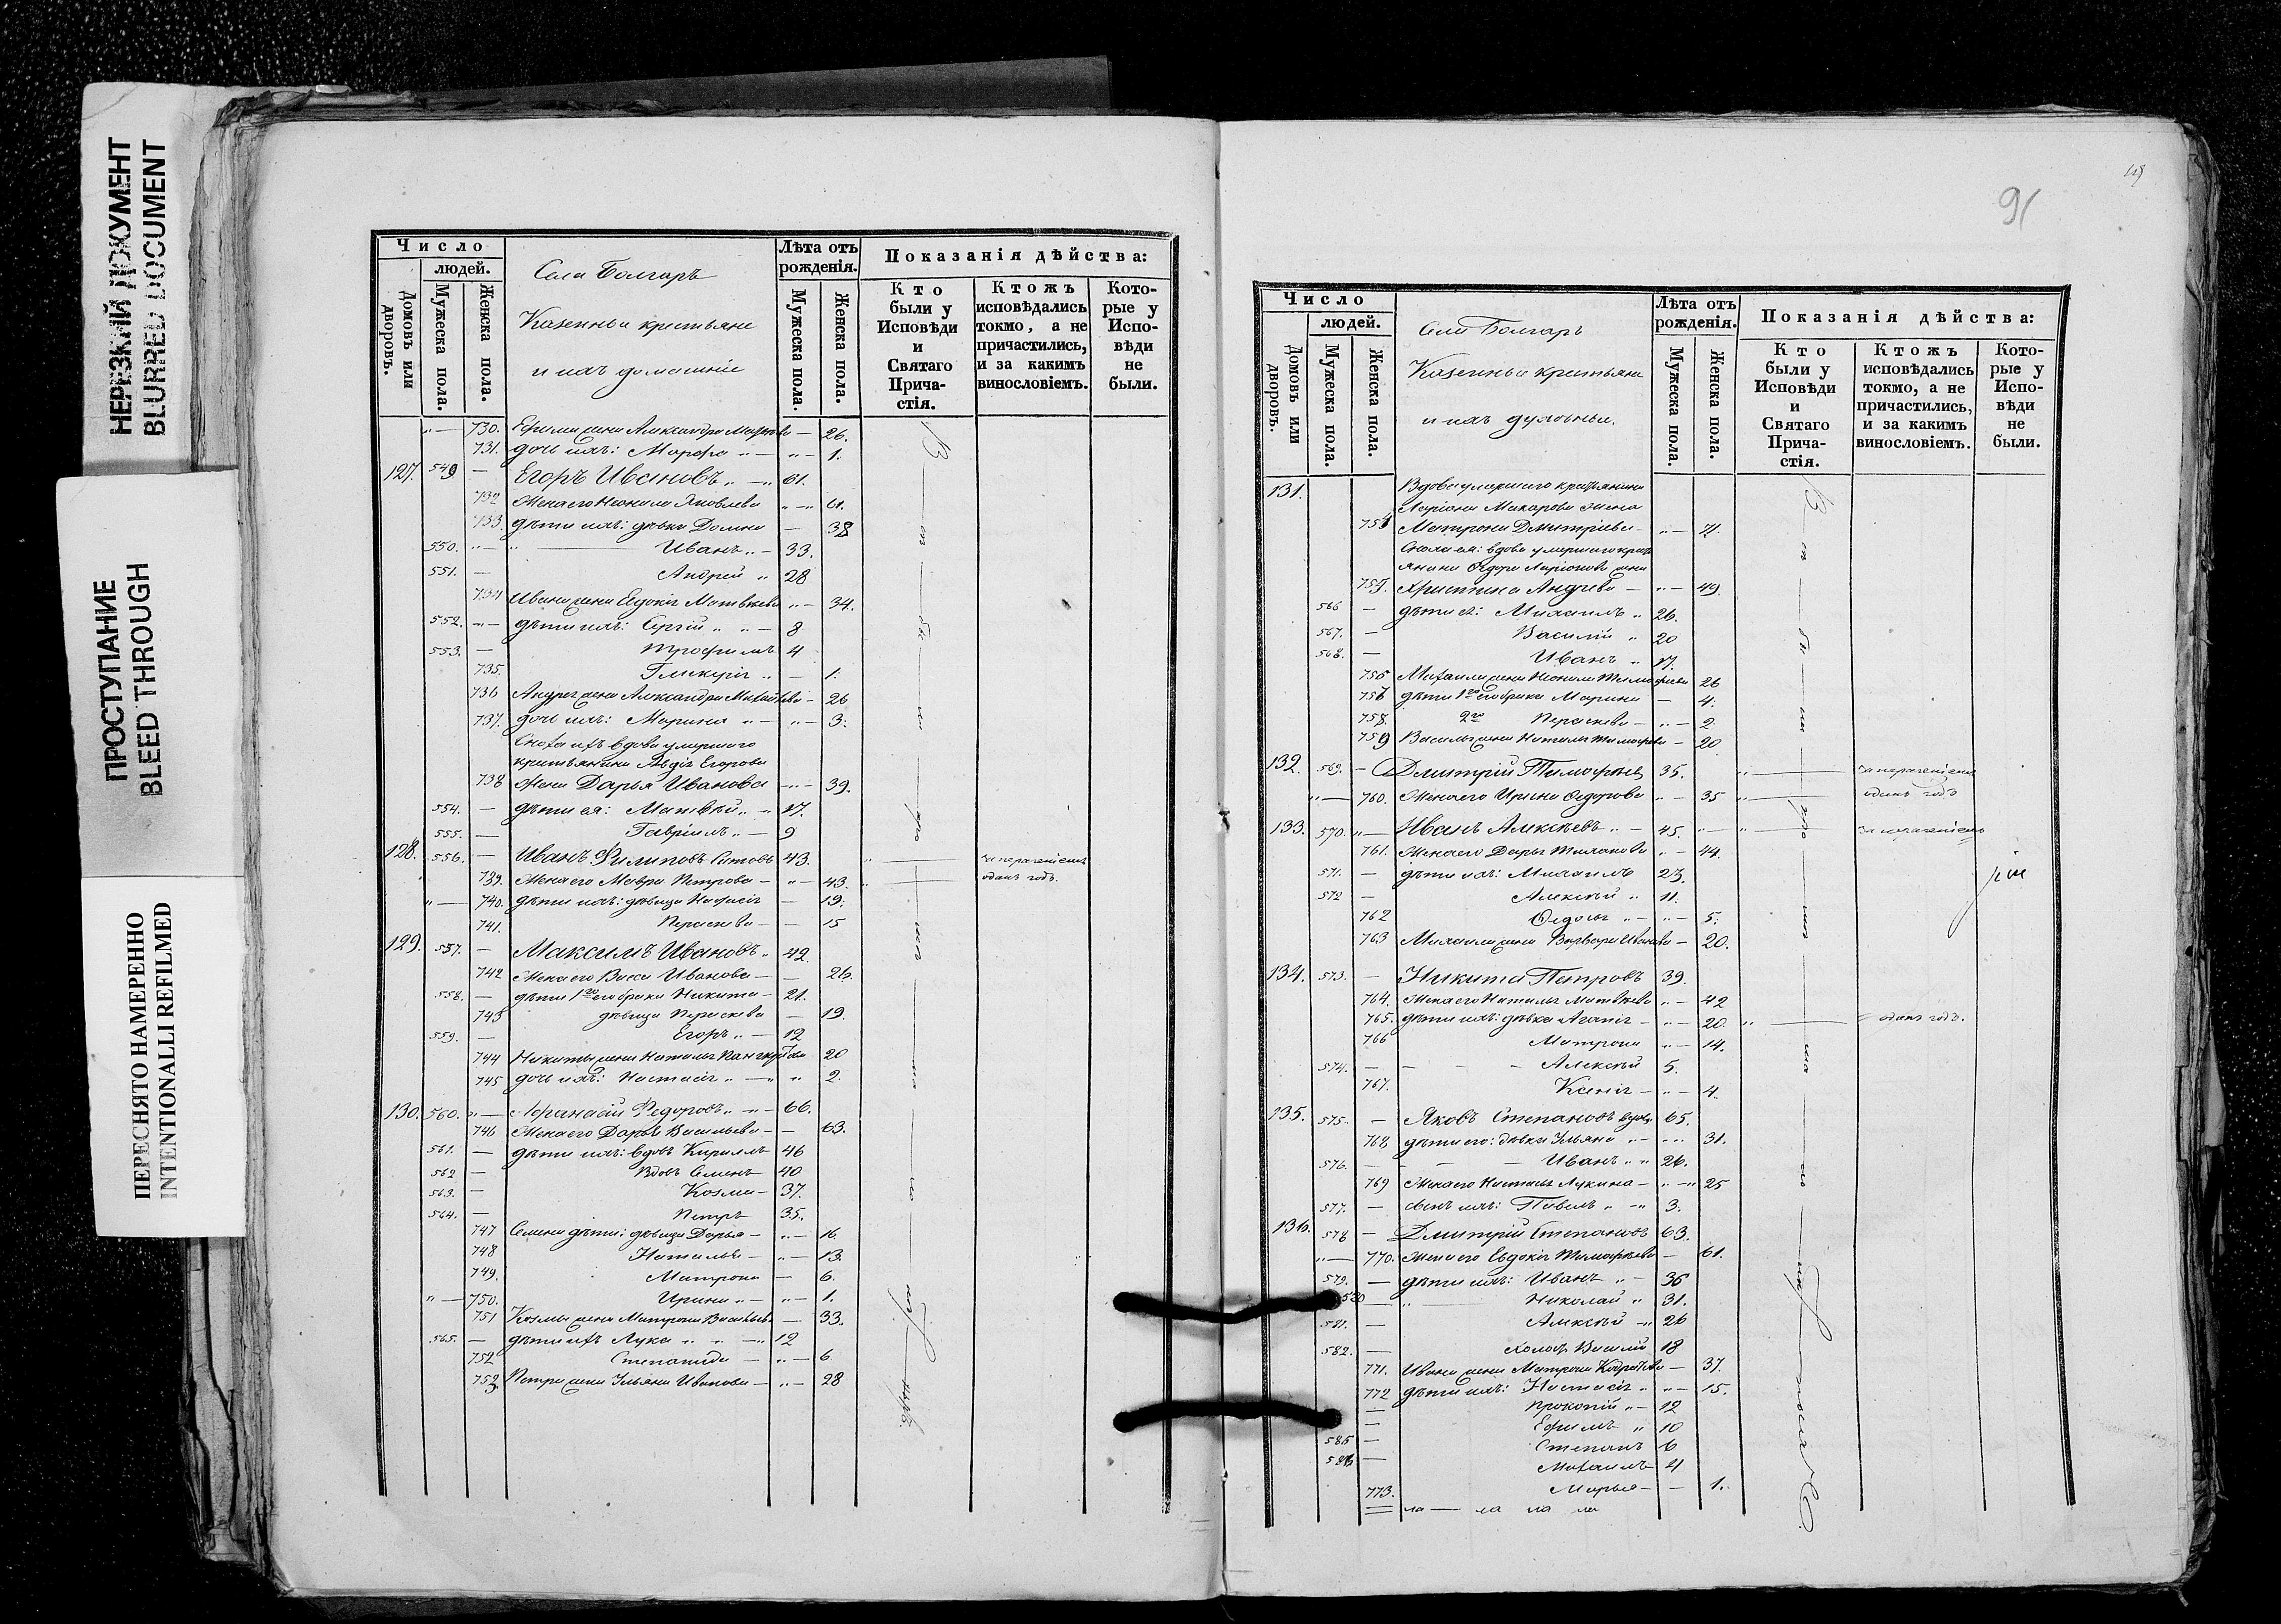 НЕРЕЗКИЙ ДОКУМЕНТ
BLURRED DOCUMENT
ПРОСТУПАНИЕ
BLEED THROUGH
ПЕРЕСНЯТО НАМЕРЕННО
INTENTIONALLI REFILMED
Число
людей.
Домовъ или дворовъ.
Мужеска пола.
Женска пола.
Села Болгаръ
Казенные крестьяне
и ихъ домашніе
Лѣта отъ рожденія.
Мужеска пола.
Женска пола.
Показанія дѣйства:
Кто были у Исповѣди и Святаго Прича- стія.
Ктожъ исповѣдались токмо, а не причастились, и за какимъ винословіемъ.
Кото- рые у Испо- вѣди не были.
730. Ефима жена Александра 26.
731. дочь ихъ: Марфа 1.
127. 549 Егоръ Ивановъ 61.
732 Жена его Неонила Яковлева 61.
733. дѣти ихъ: дѣвка Домна 38
550. Иванъ 33.
551. Андрей 28
734 Ивана жена Евдокія Матвѣева 34.
552. дѣти ихъ: Сергій 8
553. Трофимъ 4
735. Гликерія 1.
736 Андрея жена Александра 26
737. дочь ихъ: Марина 3.
Сноха ихъ вдова умершаго
крестьянина Егорова
738 жена Дарья Иванова 39.
554. дѣти ея: Матвѣй 17.
555. Гавріилъ 9
128. 556. Иванъ Филиповъ 43. за нераченіемъ
739. Жена его Мавра Петрова 43. одинъ годъ.
740. дѣти ихъ: дѣвица 19.
741. Параскева 15
129. 557. Максимъ Ивановъ 42.
742 Жена его Васса Иванова 26.
558. дѣти 1го его брака Никита 21.
743 дѣвица Параскева 19.
559. Егоръ 12
744 Никиты жена Наталья 20
745 дочь ихъ: Настасія 2.
130. 560. Афанасій Федоровъ 66.
746 Жена его Дарья Васильева 63.
561. дѣти ихъ: вдовъ Кириллъ 46
562 Вдовъ Семенъ 40
563. Козма 37.
564. Петръ 35.
747 Семена дѣти: дѣвица Дарья 16.
748 Наталья 13.
749. Матрона 6.
750. Ирина 1.
751 Козмы жена Матрона Васильева 33.
565. дѣти ихъ Лука 12
752 Степанида 6
753 Петра жена Ульяна Иванова 28
91
Число
людей.
Домовъ или дворовъ.
Мужеска пола.
Женска пола.
Села Болгаръ
Казенные крестьяне
и ихъ
Лѣта отъ рожденія.
Мужеска пола.
Женска пола.
Показанія дѣйства:
Кто были у Исповѣди и Святаго Прича- стія.
Ктожъ исповѣдались токмо, а не причастились, и за какимъ винословіемъ.
Кото- рые у Испо- вѣди не были.
131. Вдова умершаго крестьянина
Ларіона Макарова жена
754 Матрона Дмитріева 71.
Сноха ея: вдова умершаго крест
янина Ѳедора Ларіонова жена
755. Христина Андреева 49.
566 дѣти ея: Михаилъ 26.
567. Василій 20
568. Иванъ 17.
756 Михаила жена Неонила Тимофеева 26
757 дѣти 1го его брака Марина 4.
758. 2го Параскева 2
759 Василья жена Наталья Тимофеева 20
132. 569. Дмитрій Тимофѣевъ 35. за нераченіемъ
760. Жена его Ирина Ѳедорова 35 одинъ годъ
133. 570. Иванъ Алексѣевъ 45. за нераченіемъ
761. Жена его Дарья 44.
571. дѣти ихъ: Михаилъ 23.
572 Алексѣй 11.
762 Ѳедосья 5.
763 Михаила жена Варвара Иванова 20.
134. 573. Никита Петровъ 39.
764. Жена его Наталья Матвѣева 42
765. дѣти ихъ: дѣвка Агапія 20. одинъ годъ.
766 Матрона 14.
574. Алексѣй 5.
767. Ксенія 4.
135. 575. Яковъ Степановъ вдовъ 65.
768 дѣти его: дѣвка Ульяна 31.
576. Иванъ 26.
769 Жена его Наталья Лукина 25
577. сынъ ихъ: Павелъ 3.
136. 578 Дмитрій Степановъ 63.
770. Жена его Евдокія Тимофѣева 61.
579. дѣти ихъ: Иванъ 36
580 Николай 31.
581. Алексѣй 26
582. Василій 18
771. Ивана жена Матрона 37.
772 дѣти ихъ: Настасія 15.
Прокопій 12
Ефимъ 10
585 Степанъ 6
586 Михаилъ 4
773. Марья 1.